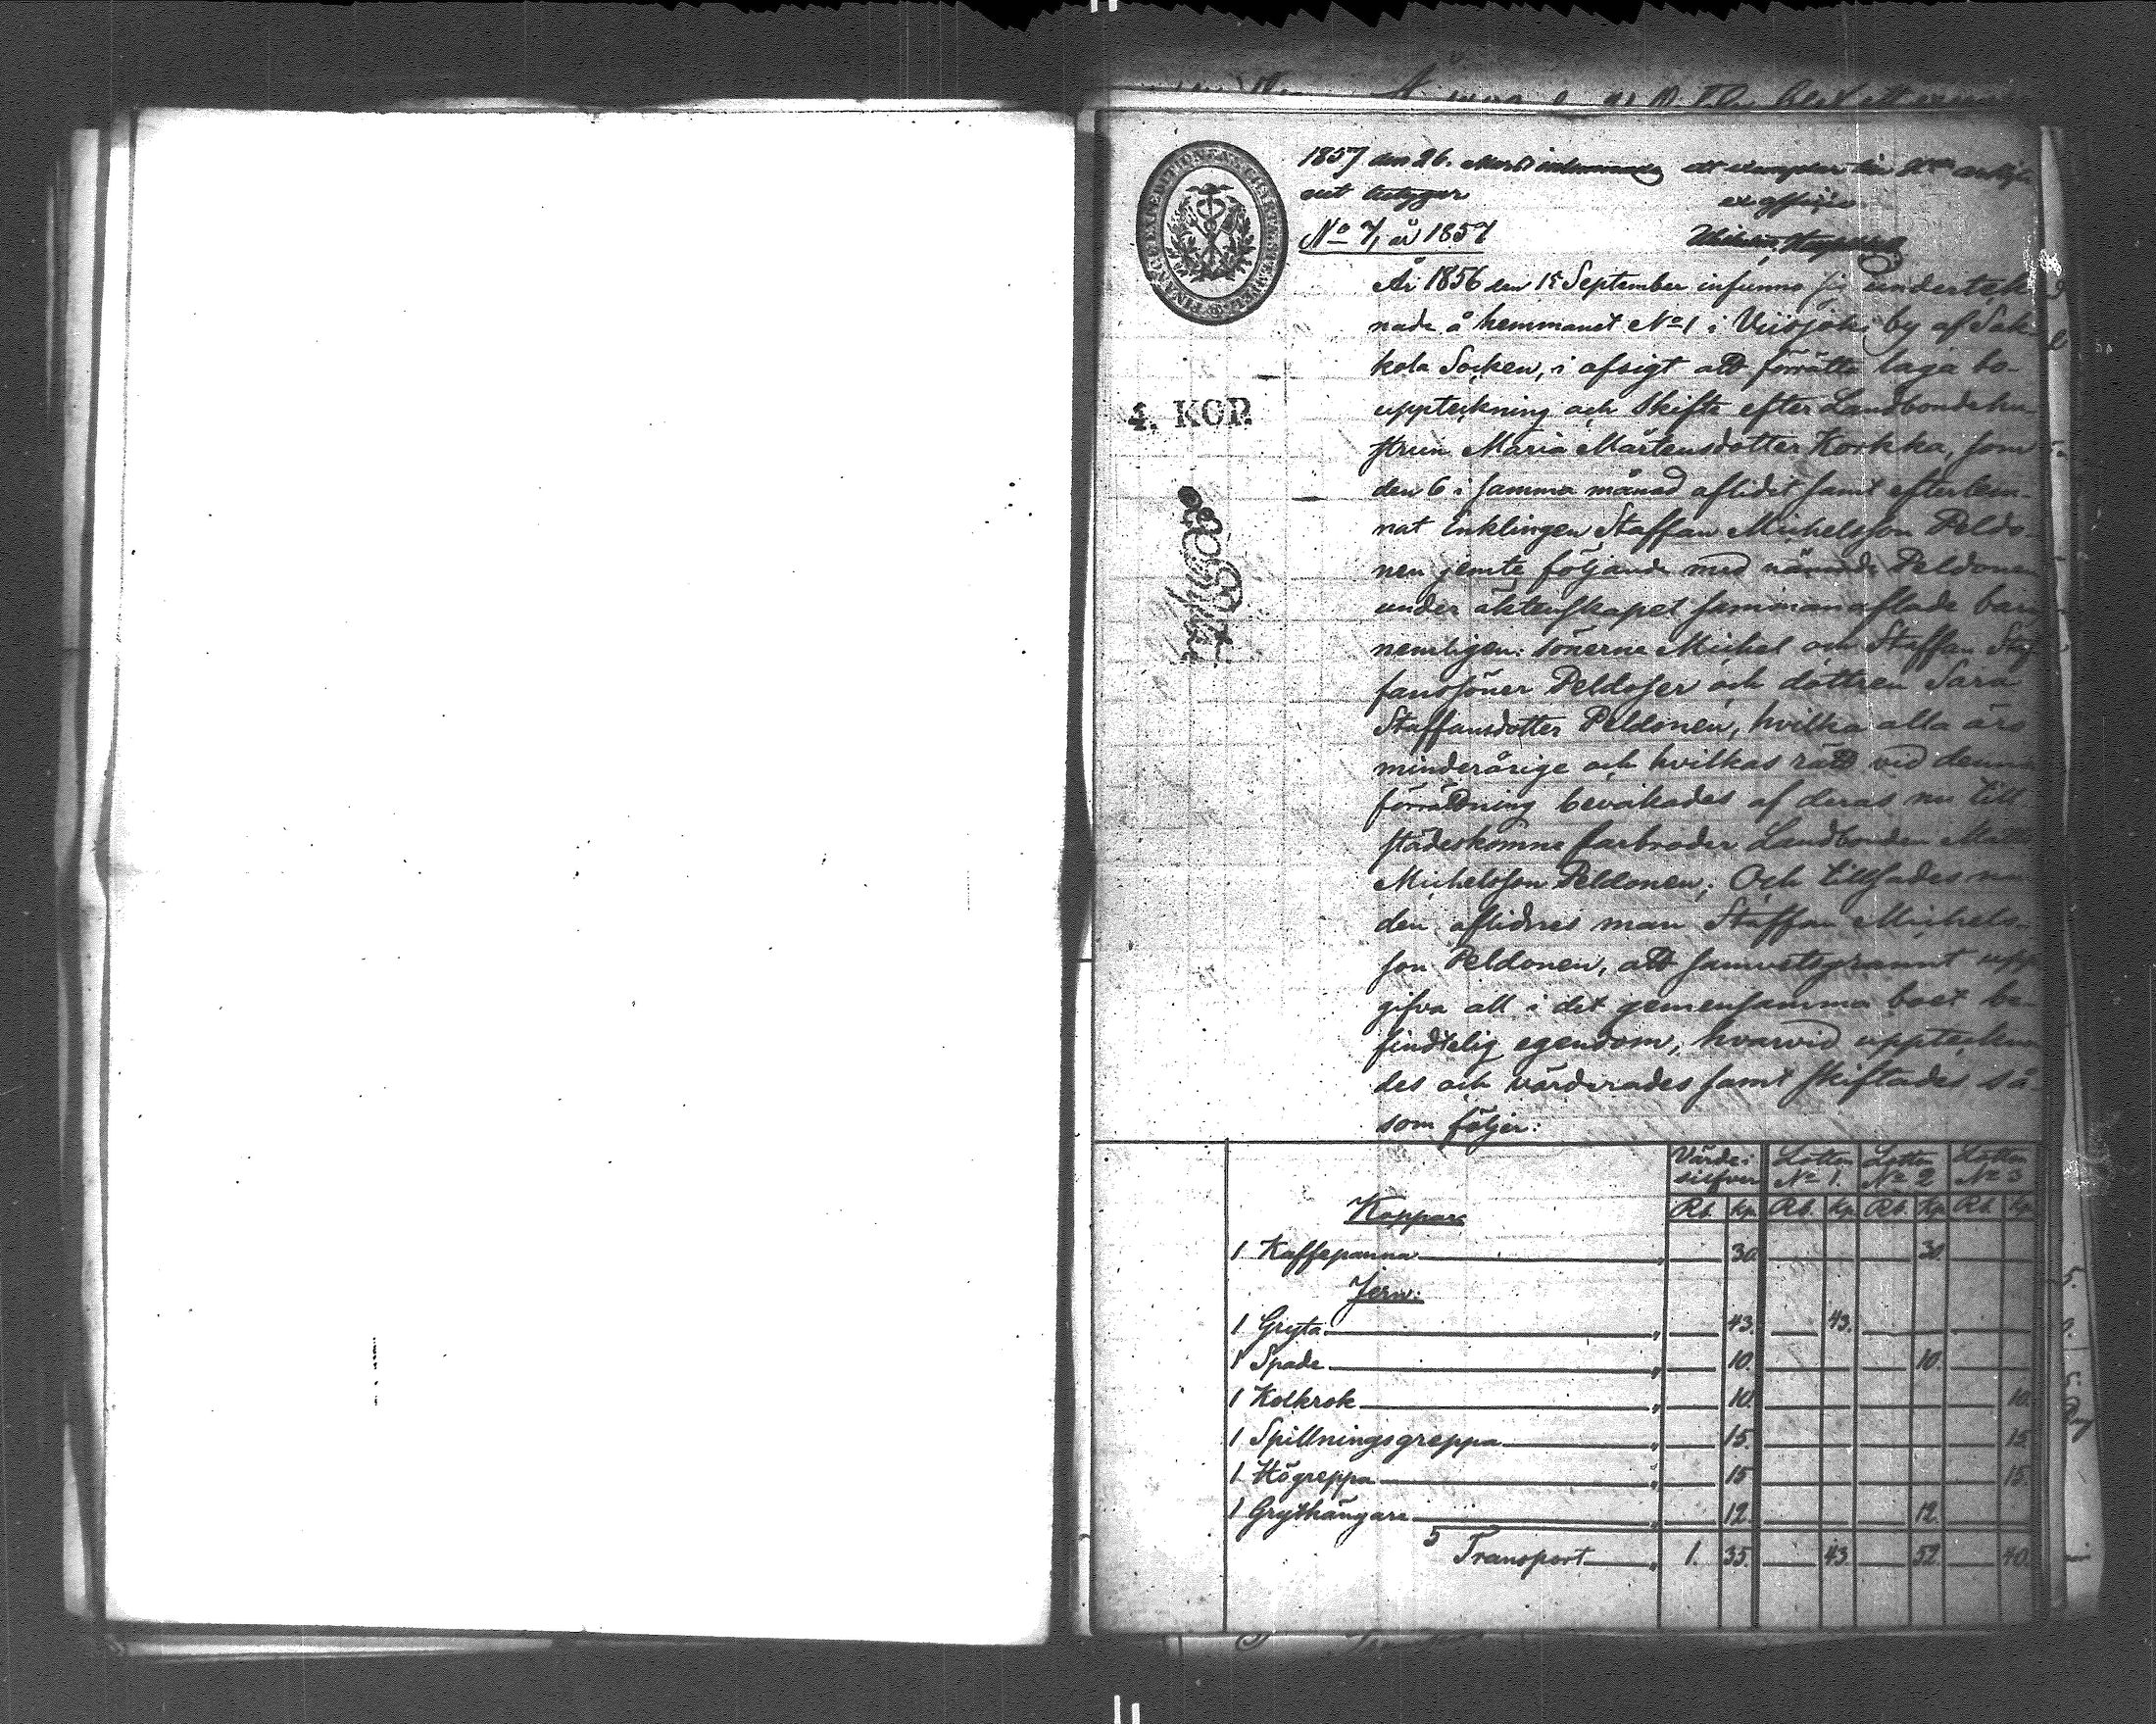 1857 den 26. Mars inlemnade ett exemplar
ex officio
No 7, år 1857
År 1856 den 15 September infunno sig underteck-
nade å hemmanet No 1 i Viisjoki by af Sak-
kola Socken, i afsigt att förrätta laga bo-
uppteckning och skifte efter Landbondehu-
strun Maria Mårtensdotter Korkka, som
den 6 i samma månad aflidit samt efterlem-
nat Enklingen Staffan Michelsson Peldo-
nen jemte följande med nämnde Peldonen
under äktenskapet sammanaflade barn
nemligen: sönerne Michel och Staffan Staf-
fanssöner Peldoser och dottren Sara
Staffansdotter Peldonen, hvilka alla äro
minderårige och hvilkas rätt vid denna
förrättning bevakades af deras nu till-
städeskomne farbroder Landbonden Matts
Michelsson Peldonen; Och tillsades nu
den aflidnes man Staffan Michels-
son Peldonen, att samvetsgrannt upp
gifva all i det gemensamma boet be-
findtelig egendom, hvarvid uppteckna
des och värderades samt skiftades så-
som följer:
4. KOP.
Värde i silfver Lotten No 1. Lotten No 2 Lotten No 3
Rb. Kp. Rb. Kp. Rb. Kp. Rb. Kp.
Koppar:
1 Kaffepanna " 30. 30.
Jern:
1 Gryta " 43. 43.
1 Spade " 10. 10.
1 Kolkrok " 10. 10.
1 Spillningsgreppa " 15. 15.
1 Högreppa " 15 15.
1 Grythängare " 12. 12.
Transport " 1. 35. 43 52. 40.